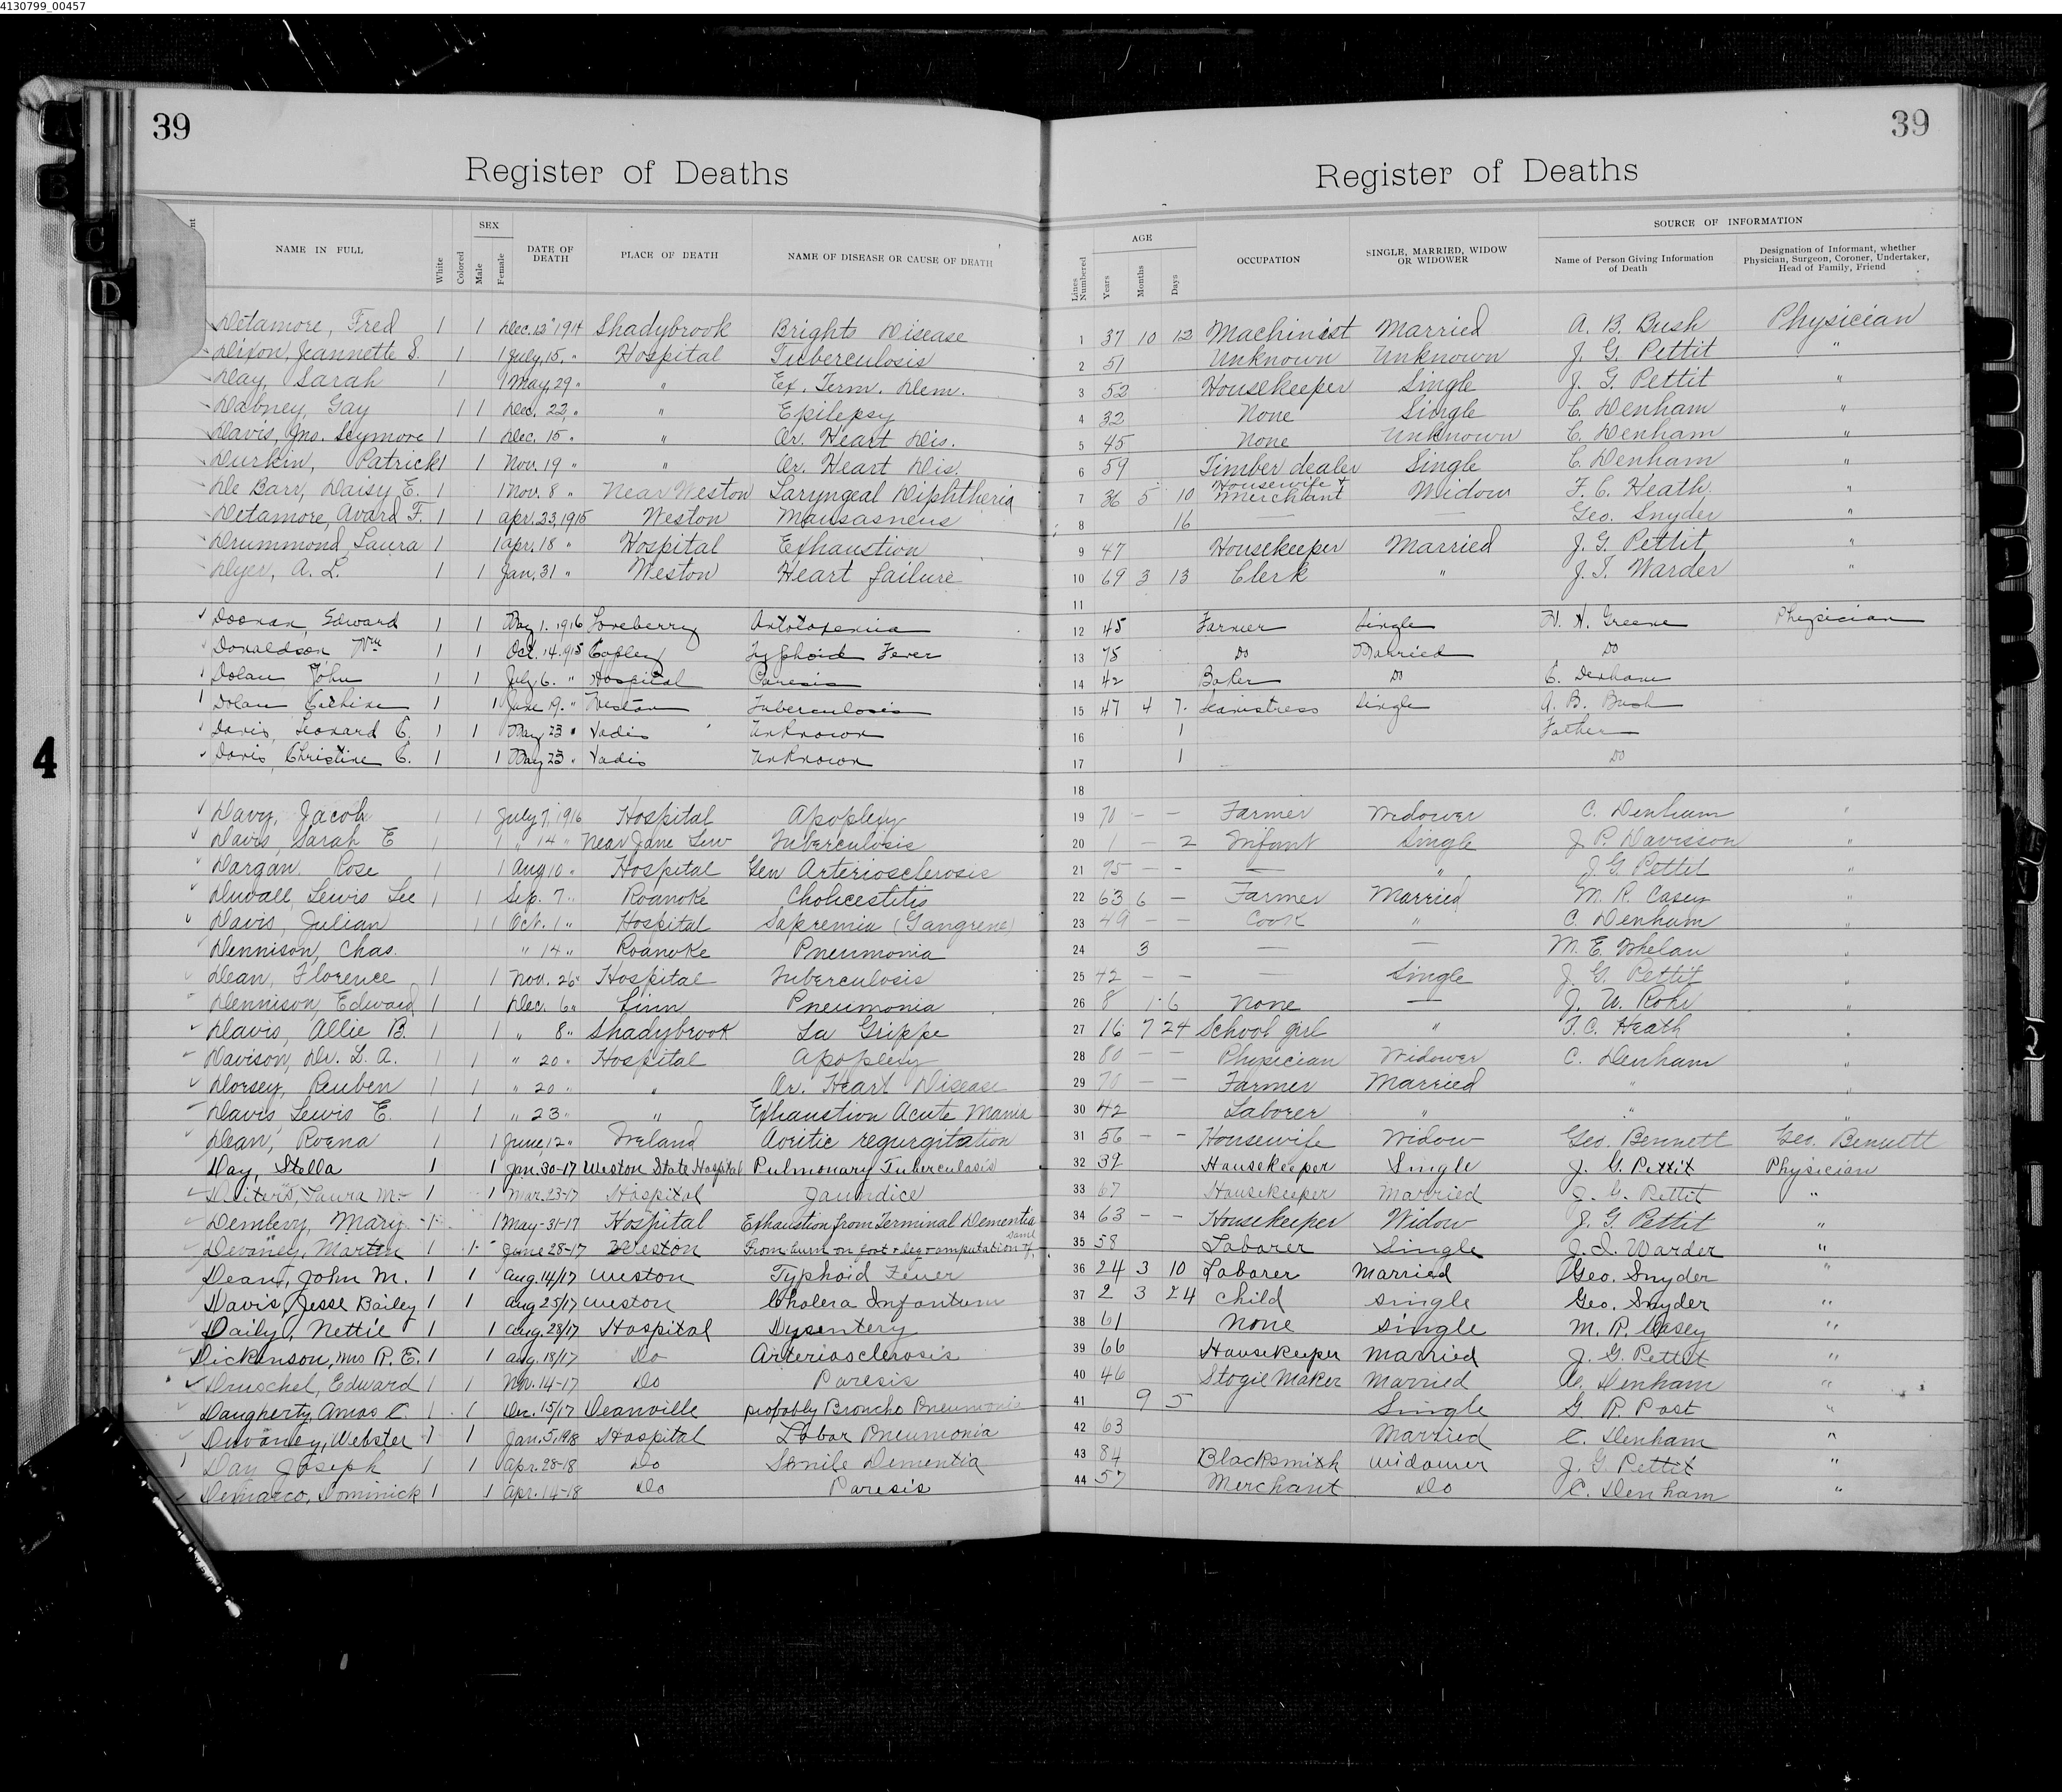 4130799_00457
39
39
Register of Deaths
Register of Deaths
NAME IN FULL White Colored SEX Male Female DATE OF DEATH PLACE OF DEATH NAME OF DISEASE OR CAUSE OF DEATH
Lines Numbered AGE Years Months Days OCCUPATION SINGLE, MARRIED, WIDOW OR WIDOWER SOURCE OF INFORMATION Name of Person Giving Information of Death Designation of Informant, whether Physician, Surgeon, Coroner, Undertaker, Head of Family, Friend
A
B
C
D
4
Detamore, Fred 1 1 Dec. 12" 1914 Shadybrook Brights Disease 1 37 10 12 Machinist Married A. B. Bush Physician
Dixon, Jeannette S. 1 1 July, 15, " Hospital Tuberculosis 2 51 Unknown Unknown J. G. Pettit "
Day, Sarah 1 1 May, 29 " " Ex. Term. Dem. 3 52 Housekeeper Single J. G. Pettit "
Dabney, Gay 1 1 Dec. 22, " " Epilepsy 4 32 None Single C. Denham "
Davis, Jno. Seymore 1 1 Dec. 15 " " Or. Heart Dis. 5 45 None Unknown C. Denham "
Durkin, Patrick 1 1 Nov. 19 " " Or. Heart Dis. 6 59 Timber dealer Single C. Denham "
De Barr, Daisy E. 1 1 Nov. 8 " Near Weston Laryngeal Diphtheria 7 36 5 10 Housewife & Merchant Widow F. C. Heath "
Detamore, Avard F. 1 1 Apr. 23, 1915 Weston 8 16 — — Geo. Snyder "
Drummond, Laura 1 1 Apr. 18 " Hospital Exhaustion 9 47 Housekeeper Married J. G. Pettit "
Dyer, A. L. 1 1 Jan. 31 " Weston Heart failure 10 69 3 13 Clerk " J. I. Warder "
11
Doonan, Edward 1 1 May 1. 1916 Loveberry 12 45 Farmer Single H. H. Greene Physician
Donaldson Wm 1 1 Oct. 14. 915 Copley Typhoid Fever 13 75 Do Married Do
Dolan John 1 1 July 6. " Hospital Paresis 14 42 Baker Do C. Denham
Dolan 1 1 June 19. " Weston Tuberculosis 15 47 4 7. Seamstress Single A. B. Bush
Davis, Leonard C. 1 1 May 23 " Vadis Unknown 16 1 Father
Davis, Christine C. 1 1 May 23 " Vadis Unknown 17 1 Do
18
Davy, Jacob 1 1 July 7, 1916 Hospital Apoplexy 19 70 - — Farmer Widower C. Denham "
Davis, Sarah E 1 1 " 14 " Near Jane Lew Tuberculosis 20 1 — 2 Infant Single J. P. Davisson "
Dargan, Rose 1 1 Aug 10 " Hospital Gen Arteriosclerosis 21 95 — - — " J. G. Pettit "
Duvall, Lewis Lee 1 1 Sep. 7 " Roanoke Cholicestitis 22 63 6 — Farmer Married M. R. Casey "
Davis, Julian 1 1 Oct. 1 " Hospital Sapremia (Gangrene) 23 49 — — Cook " C. Denham "
Dennison, Chas. " 14 " Roanoke Pneumonia 24 3 — — M. E. Whelan "
Dean, Florence 1 1 Nov. 26 " Hospital Tuberculosis 25 42 — — — Single J. G. Pettit "
Dennison, Edward 1 1 Dec. 6 " Linn Pneumonia 26 8 1 6 None — J. W. Rohr "
Davis, Allie B. 1 1 " 8 " Shadybrook La Grippe 27 16 7 24 School girl " F. C. Heath "
Davison, Dr. L. A. 1 1 " 20 " Hospital Apoplexy 28 80 — — Physician Widower C. Denham "
Dorsey, Reuben 1 1 " 20 " " Or. Heart Disease 29 70 — — Farmer Married " "
Davis, Lewis E. 1 1 " 23 " " Exhaustion Acute Mania 30 42 Laborer " " "
Dean, Roena 1 1 June, 12 " Ireland Aoritic regurgitation 31 56 — - Housewife Widow Geo. Bennett Geo. Bennett
Day, Stella 1 1 Jan. 30-17 Weston State Hospital Pulmonary Tuberculosis 32 39 Housekeeper Single J. G. Pettit Physician
Laura M. 1 1 Mar. 23-17 Hospital Jaundice 33 67 Housekeeper Married J. G. Pettit "
Mary 1 1 May-31-17 Hospital Exhaustion from Terminal Dementia 34 63 — - Housekeeper Widow J. G. Pettit "
Devaney, Martin 1 1 June 28-17 Weston From burn on foot & leg & amputation of same 35 58 Laborer Single J. I. Warder "
Dean, John M. 1 1 Aug. 14/17 Weston Typhoid Fever 36 24 3 10 Laborer Married Geo. Snyder "
Davis, Jesse Bailey 1 1 Aug 25/17 Weston Cholera Infantum 37 2 3 24 Child Single Geo. Snyder "
Daily, Nettie 1 1 Aug. 28/17 Hospital Dysentery 38 61 None Single M. R. Casey "
Dickinson, Mrs R. E. 1 1 Aug. 18/17 Do Arteriosclerosis 39 66 Housekeeper Married J. G. Pettit "
Druschel, Edward 1 1 Nov. 14-17 Do Paresis 40 46 Stogie Maker Married C. Denham "
Daugherty, Amos C. 1 1 Dec. 15/17 Deanville probably Broncho Pneumonia 41 9 5 Single G. R. Post "
Devaney, Webster 1 1 Jan. 5, 1918 Hospital Lobar Pneumonia 42 63 Married C. Denham "
Day Joseph 1 1 Apr. 28-18 Do Senile Dementia 43 84 Blacksmith Widower J. G. Pettit "
Demarco, Dominick 1 1 Apr. 14-18 Do Paresis 44 57 Merchant Do C. Denham "